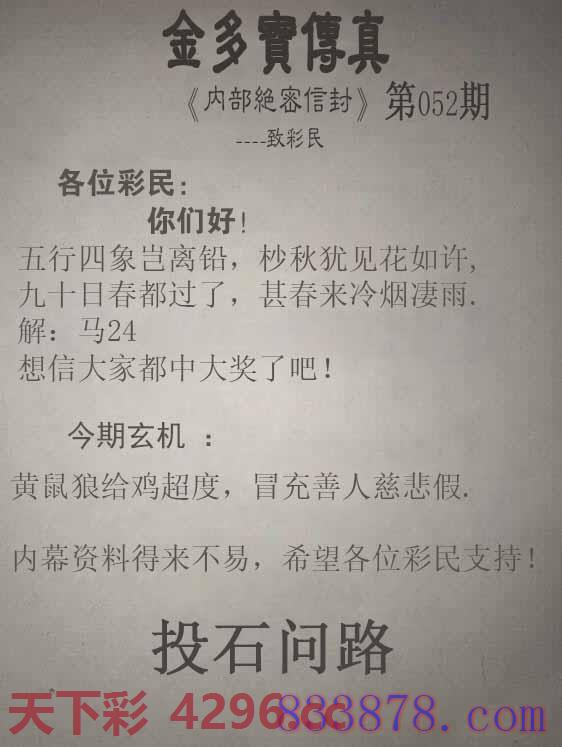 金多寶傳真
《内部絶密信封》第052期
----致彩民
各位彩民:
你们好!
五行四象岂离铅，杪秋犹见花如许,
九十日春都过了，甚春来冷烟凄雨.
解：马24
想信大家都中大奖了吧!
今期玄机 :
黄鼠狼给鸡超度，冒充善人慈悲假.
内幕资料得来不易，希望各位彩民支持!
投石问路
天下彩 4296.cc
883878.com